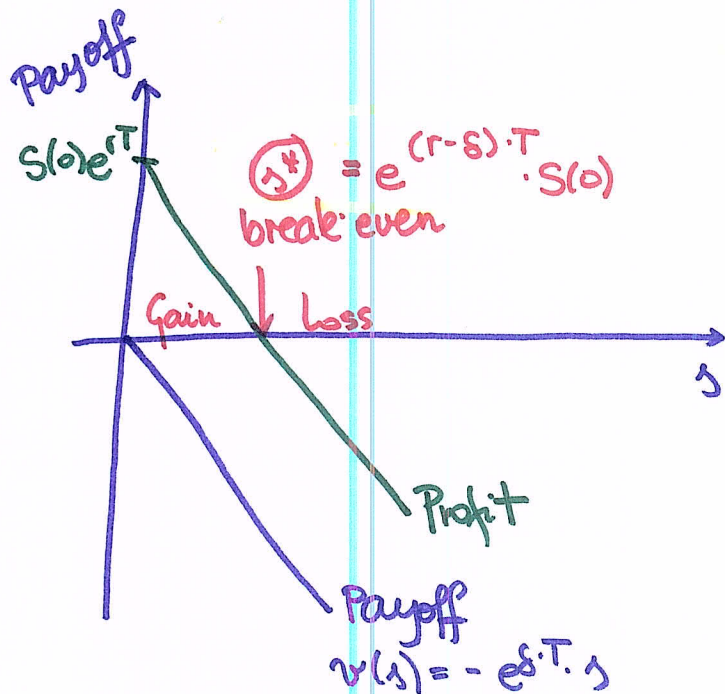 Payoff
S(0)e^{rT}
s* = e^{(r-δ)·T} · S(0)
break·even
Gain Loss
s
Profit
Payoff
v(s) = - e^{δ·T}· s